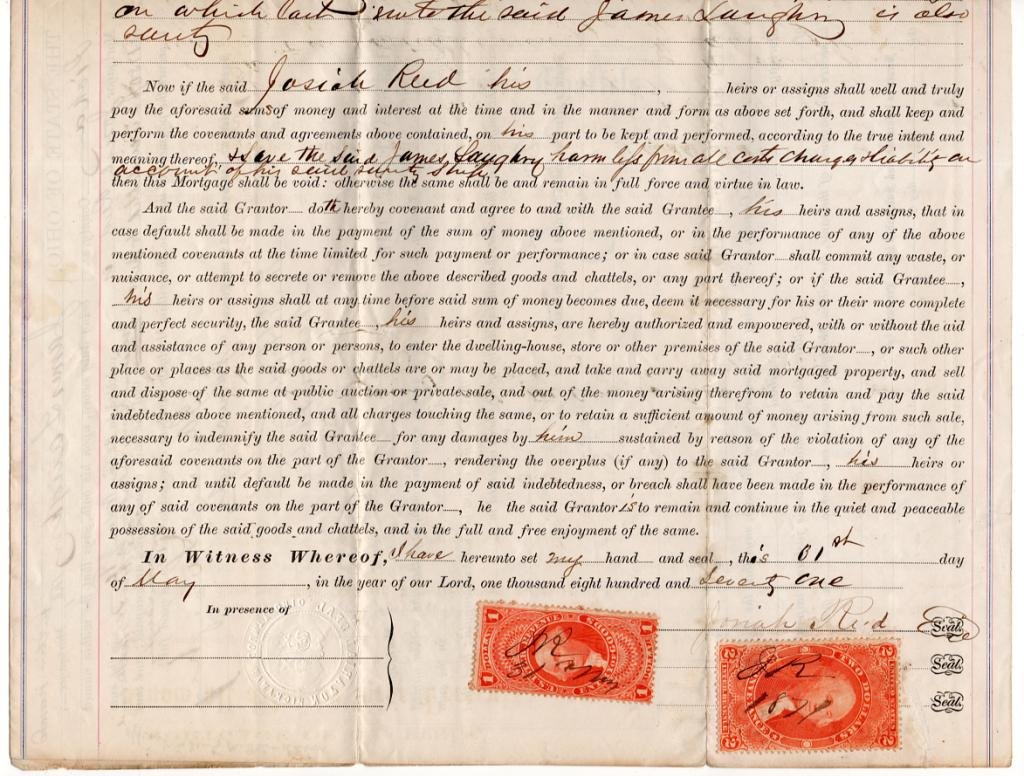 on which said James Laughry is also
surity
Now if the said Josiah Reed his , heirs or assigns shall well and truly
pay the aforesaid sums of money and interest at the time and in the manner and form as above set forth, and shall keep and
perform the covenants and agreements above contained, on his part to be kept and performed, according to the true intent and
meaning thereof, & save the said James Laughry harmless from all costs charges & liability on
account of his said surity ship
then this Mortgage shall be void: otherwise the same shall be and remain in full force and virtue in law.
And the said Grantor doth hereby covenant and agree to and with the said Grantee, his heirs and assigns, that in
case default shall be made in the payment of the sum of money above mentioned, or in the performance of any of the above
mentioned covenants at the time limited for such payment or performance; or in case said Grantor shall commit any waste, or
nuisance, or attempt to secrete or remove the above described goods and chattels, or any part thereof; or if the said Grantee,
his heirs or assigns shall at any time before said sum of money becomes due, deem it necessary for his or their more complete
and perfect security, the said Grantee, his heirs and assigns, are hereby authorized and empowered, with or without the aid
and assistance of any person or persons, to enter the dwelling-house, store or other premises of the said Grantor, or such other
place or places as the said goods or chattels are or may be placed, and take and carry away said mortgaged property, and sell
and dispose of the same at public auction or private sale, and out of the money arising therefrom to retain and pay the said
indebtedness above mentioned, and all charges touching the same, or to retain a sufficient amount of money arising from such sale,
necessary to indemnify the said Grantee for any damages by him sustained by reason of the violation of any of the
aforesaid covenants on the part of the Grantor, rendering the overplus (if any) to the said Grantor, his heirs or
assigns; and until default be made in the payment of said indebtedness, or breach shall have been made in the performance of
any of said covenants on the part of the Grantor, he the said Grantor is to remain and continue in the quiet and peaceable
possession of the said goods and chattels, and in the full and free enjoyment of the same.
In Witness Whereof, I have hereunto set my hand and seal, this 01st day
of May , in the year of our Lord, one thousand eight hundred and Seventy One
In presence of
Josiah Reed Seal.
Seal.
Seal.
1 1
JR
1 1
TWO DOLLARS
JR
1871
2 2